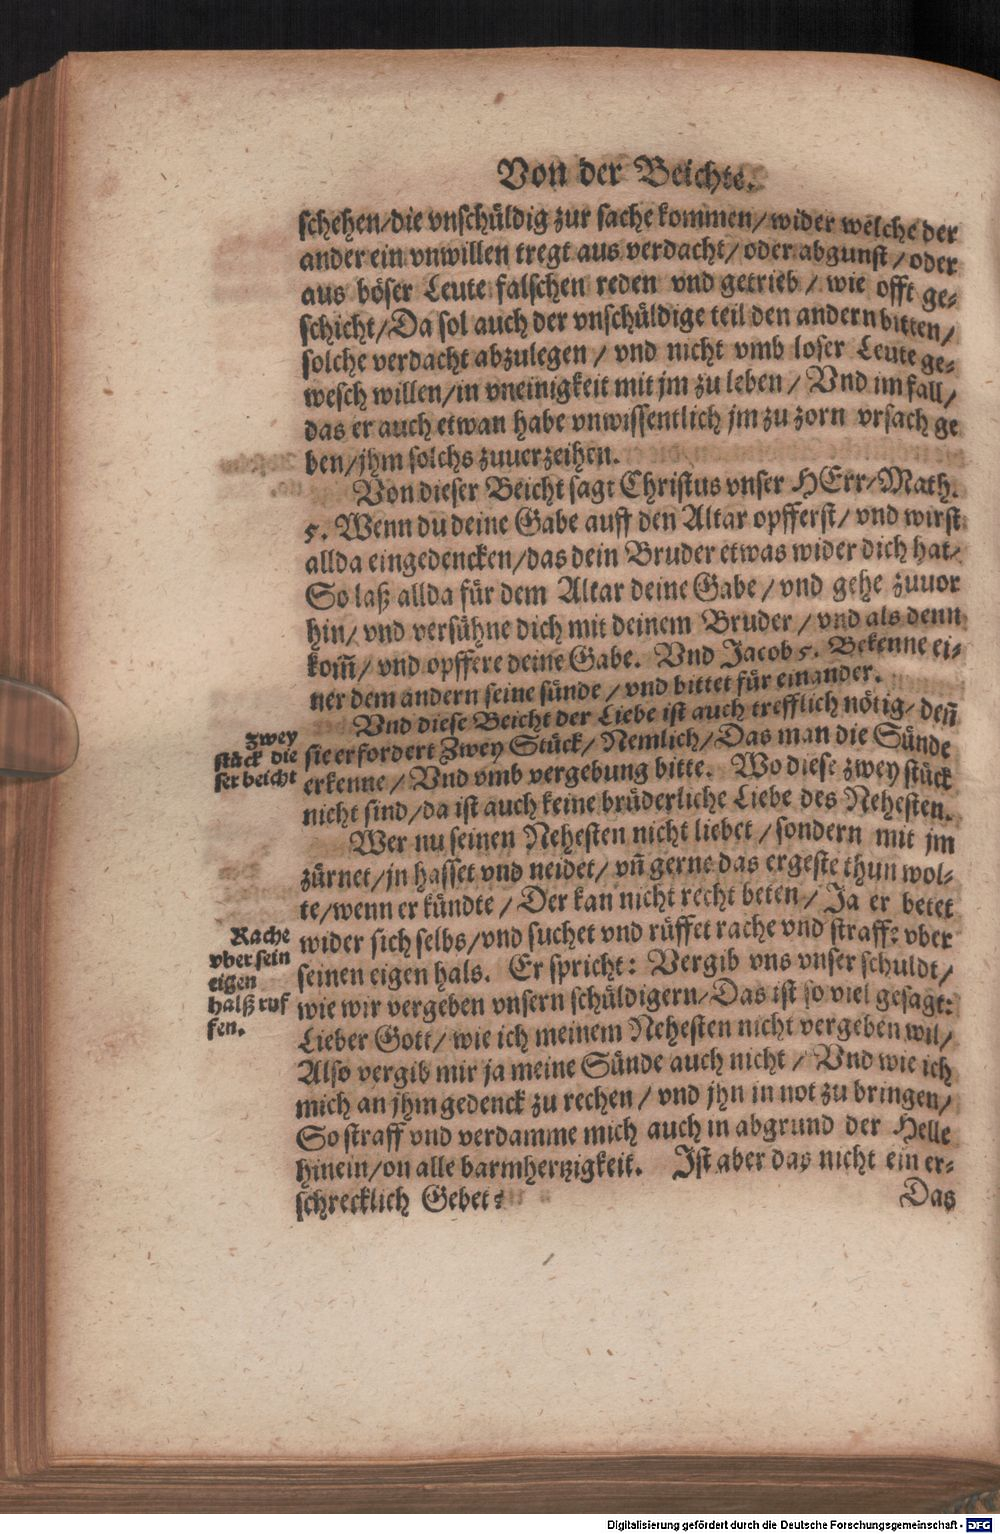 Von der Beichte.
schehen/die vnschüldig zur sache kommen/wider welche der
ander ein vnwillen tregt aus verdacht/oder abgunst/oder
aus böser Leute falschen reden vnd getrieb/wie offt ge-
schicht/Da sol auch der vnschüldige teil den andern bitten/
solche verdacht abzulegen/vnd nicht vmb loser Leute ge-
wesch willen/in vneinigkeit mit jm zu leben/Vnd im fall/
das er auch etwan habe vnwissentlich jm zu zorn vrsach ge
ben/jhm solchs zuuerzeihen.
Von dieser Beicht sagt Christus vnser HErr/Math.
5. Wenn du deine Gabe auff den Altar opfferst/vnd wirst
allda eingedencken/das dein Bruder etwas wider dich hat/
So laß allda für dem Altar deine Gabe/vnd gehe zuuor
hin/vnd versühne dich mit deinem Bruder/vnd als denn
kom̃/vnd opffere deine Gabe. Vnd Jacob 5. Bekenne ei-
ner dem andern seine sünde/vnd bittet für einander.
Vnd diese Beicht der Liebe ist auch trefflich nötig/deñ
zwey
stück die
ser beicht
sie erfordert Zwey Stück/Nemlich/Das man die Sünde
erkenne/Vnd vmb vergebung bitte. Wo diese zwey stück
nicht sind/da ist auch keine brüderliche Liebe des Nehesten.
Wer nu seinen Nehesten nicht liebet/sondern mit jm
zürnet/jn hasset vnd neidet/vñ gerne das ergeste thun wol-
te/wenn er kündte/Der kan nicht recht beten/Ja er betet
Rache
vber sein
eigen
halß ruf
fen.
wider sich selbs/vnd suchet vnd rüffet rache vnd straffe vber
seinen eigen hals. Er spricht: Vergib vns vnser schuldt/
wie wir vergeben vnsern schüldigern/Das ist so viel gesagt:
Lieber Gott/wie ich meinem Nehesten nicht vergeben wil/
Also vergib mir ja meine Sünde auch nicht/Vnd wie ich
mich an jhm gedenck zu rechen/vnd jhn in not zu bringen/
So straff vnd verdamme mich auch in abgrund der Helle
hinein/on alle barmhertzigkeit. Ist aber das nicht ein er-
schrecklich Gebet?
Das
Digitalisierung gefördert durch die Deutsche Forschungsgemeinschaft - DFG